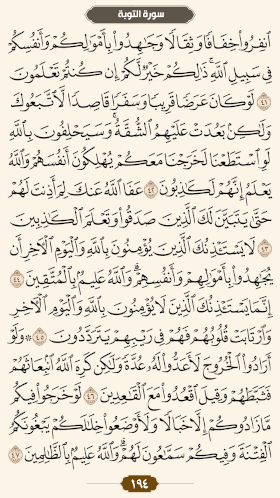 سورة التوبة
ٱنفِرُوا۟ خِفَافًا وَثِقَالًا وَجَـٰهِدُوا۟ بِأَمْوَٰلِكُمْ وَأَنفُسِكُمْ
فِى سَبِيلِ ٱللَّهِ ۚ ذَٰلِكُمْ خَيْرٌ لَّكُمْ إِن كُنتُمْ تَعْلَمُونَ
٤١ لَوْ كَانَ عَرَضًا قَرِيبًا وَسَفَرًا قَاصِدًا لَّٱتَّبَعُوكَ
وَلَـٰكِنۢ بَعُدَتْ عَلَيْهِمُ ٱلشُّقَّةُ ۚ وَسَيَحْلِفُونَ بِٱللَّهِ
لَوِ ٱسْتَطَعْنَا لَخَرَجْنَا مَعَكُمْ يُهْلِكُونَ أَنفُسَهُمْ وَٱللَّهُ
يَعْلَمُ إِنَّهُمْ لَكَـٰذِبُونَ ٤٢ عَفَا ٱللَّهُ عَنكَ لِمَ أَذِنتَ لَهُمْ
حَتَّىٰ يَتَبَيَّنَ لَكَ ٱلَّذِينَ صَدَقُوا۟ وَتَعْلَمَ ٱلْكَـٰذِبِينَ
٤٣ لَا يَسْتَـْٔذِنُكَ ٱلَّذِينَ يُؤْمِنُونَ بِٱللَّهِ وَٱلْيَوْمِ ٱلْـَٔاخِرِ أَن
يُجَـٰهِدُوا۟ بِأَمْوَٰلِهِمْ وَأَنفُسِهِمْ ۗ وَٱللَّهُ عَلِيمٌۢ بِٱلْمُتَّقِينَ ٤٤
إِنَّمَا يَسْتَـْٔذِنُكَ ٱلَّذِينَ لَا يُؤْمِنُونَ بِٱللَّهِ وَٱلْيَوْمِ ٱلْـَٔاخِرِ
وَٱرْتَابَتْ قُلُوبُهُمْ فَهُمْ فِى رَيْبِهِمْ يَتَرَدَّدُونَ ٤٥ ۞ وَلَوْ
أَرَادُوا۟ ٱلْخُرُوجَ لَأَعَدُّوا۟ لَهُۥ عُدَّةً وَلَـٰكِن كَرِهَ ٱللَّهُ ٱنۢبِعَاثَهُمْ
فَثَبَّطَهُمْ وَقِيلَ ٱقْعُدُوا۟ مَعَ ٱلْقَـٰعِدِينَ ٤٦ لَوْ خَرَجُوا۟ فِيكُم
مَّا زَادُوكُمْ إِلَّا خَبَالًا وَلَأَوْضَعُوا۟ خِلَـٰلَكُمْ يَبْغُونَكُمُ
ٱلْفِتْنَةَ وَفِيكُمْ سَمَّـٰعُونَ لَهُمْ ۗ وَٱللَّهُ عَلِيمٌۢ بِٱلظَّـٰلِمِينَ ٤٧
١٩٤